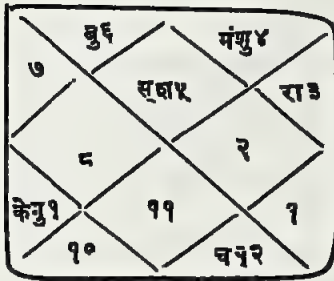 बु६ मंशु४
७ सूश५ रा३
८ २
केगु९ ११ १
१० च१२